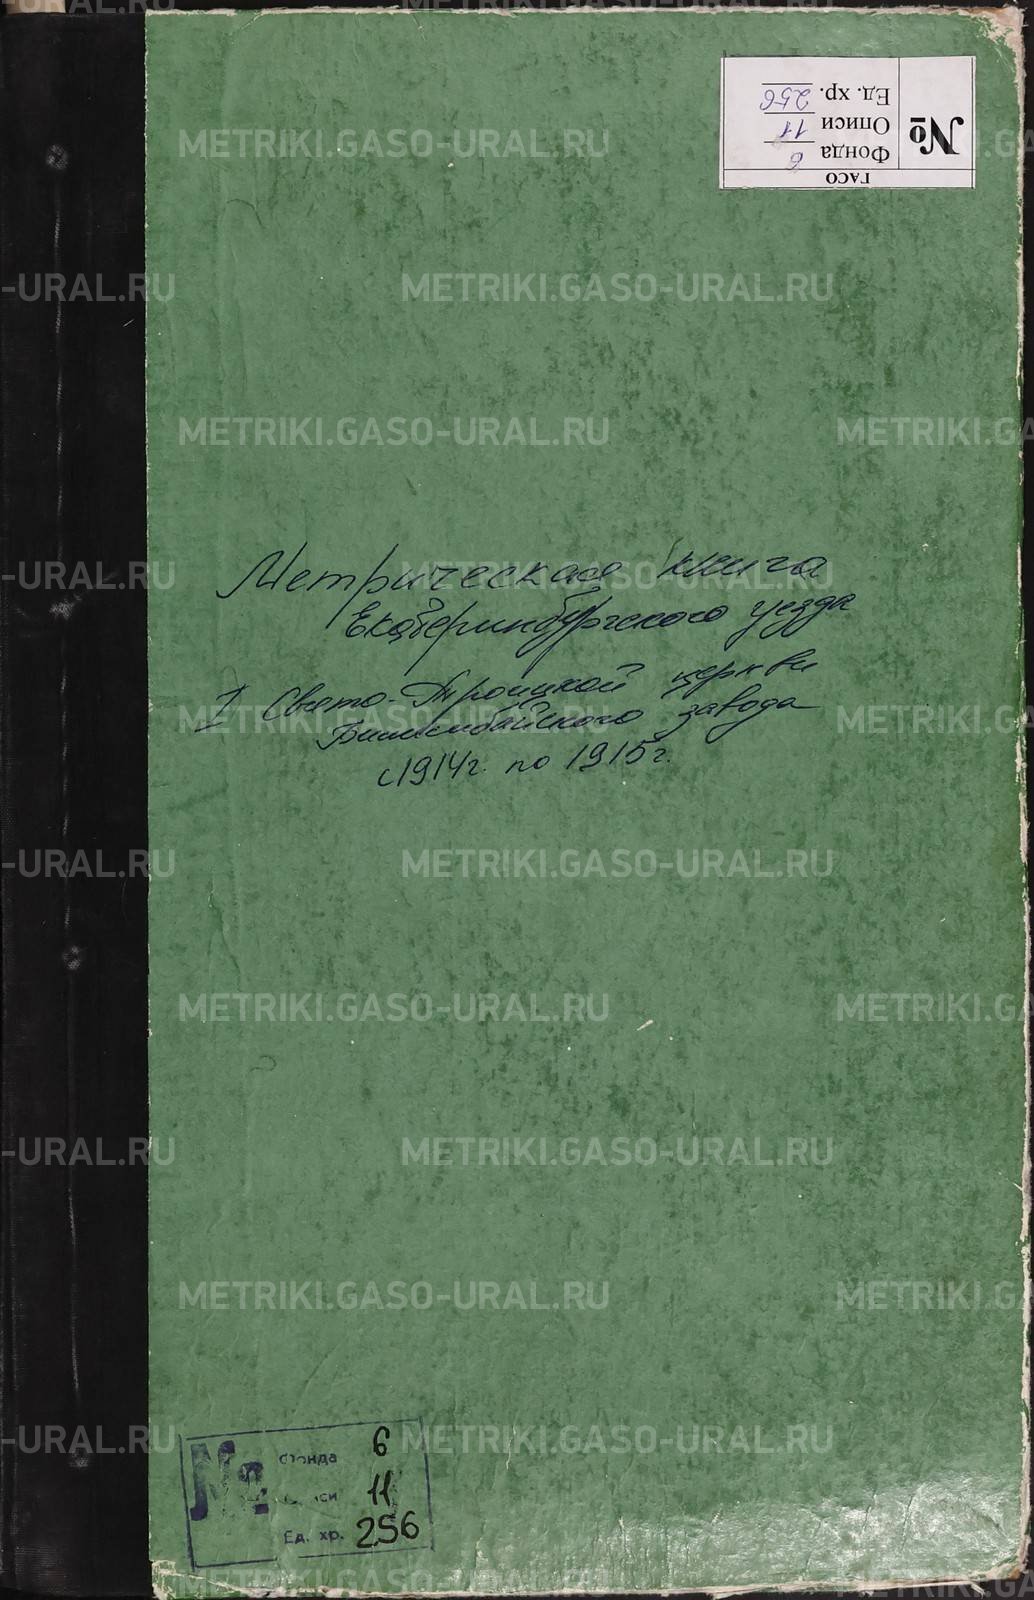 ГАСО
№
Фонда 6
Описи 11
Ед. хр. 256
Метрическая книга
Екатеринбургского уезда
1 Свято-Троицкой церкви
Билимбайского завода
с 1914г. по 1915г.
№
фонда 6
описи 11
Ед. хр. 256
METRIKI.GASO-URAL.RU